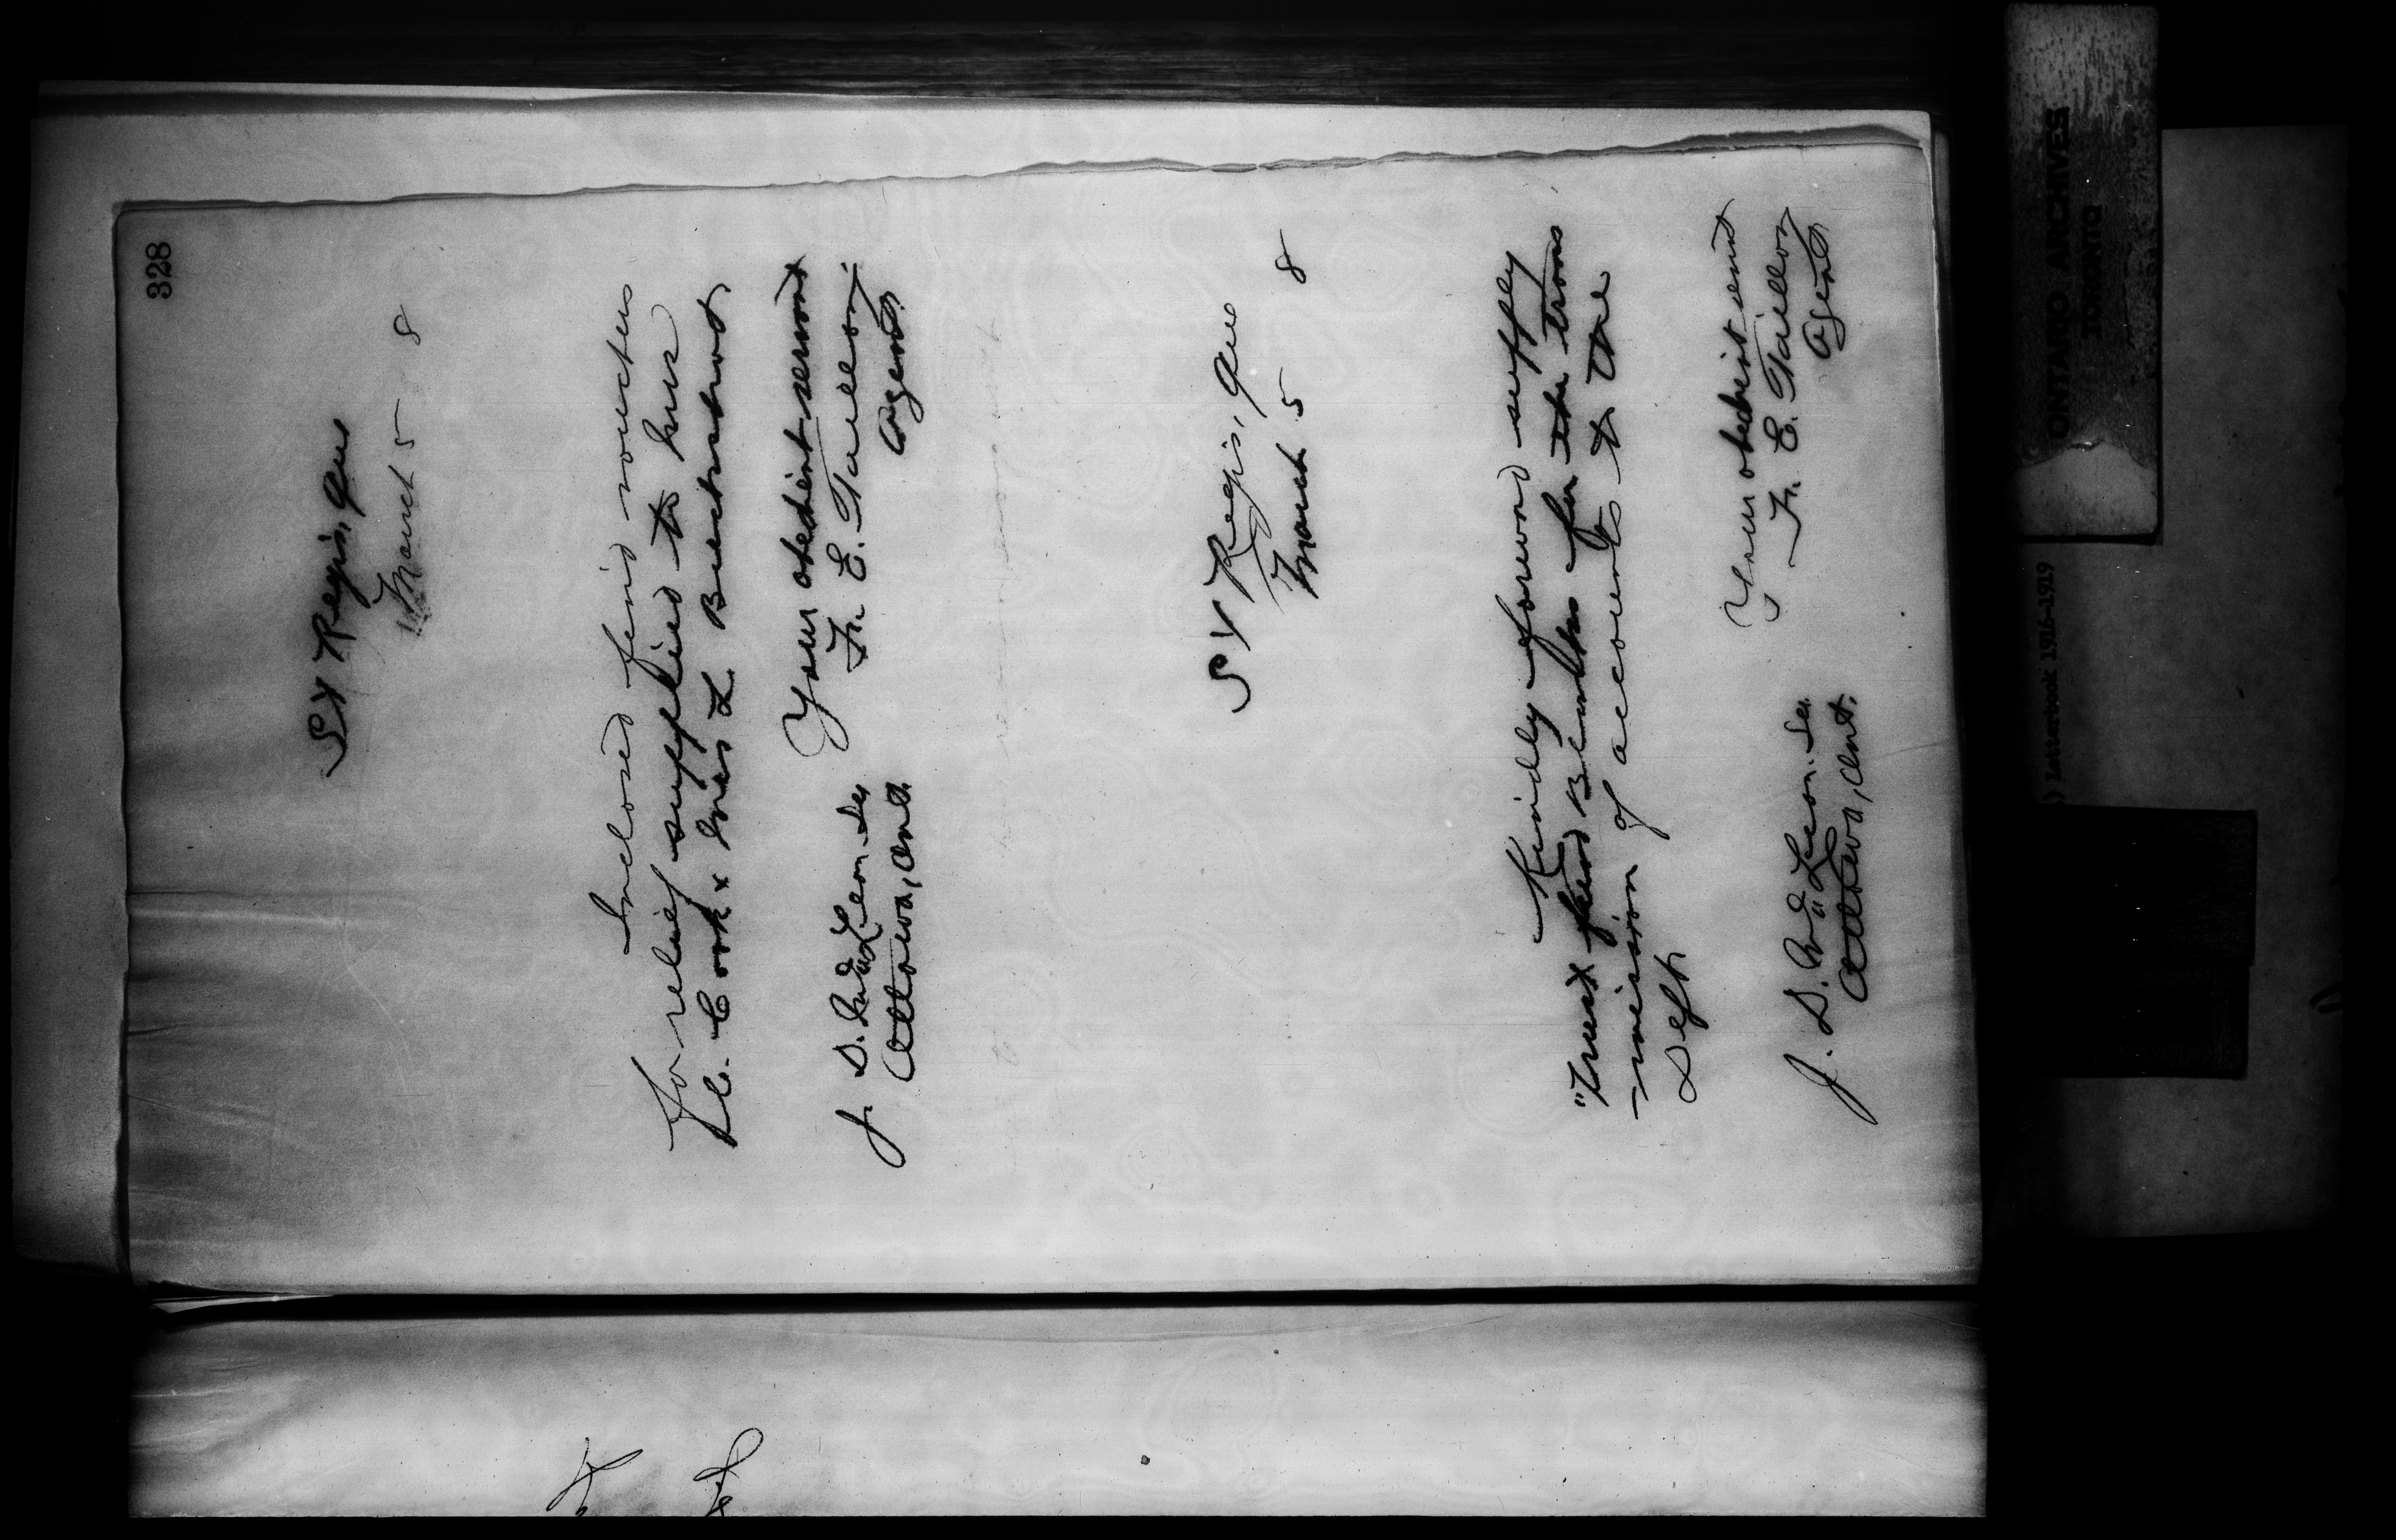 328
St Regis, Que
March 5 8
Inclosed find vouchers
for relief supplied to Mrs
C. Cook & Mrs L.
Your obedient servant
F. E. Taillon
Agent.
J. D. McLean. Sec
Ottawa, Ont.
St Regis, Que
March 5 8
Kindly forward supply
"Trust fund Blanks for the trans
-mission of accounts to the
Dept.
Your obedient servt
F. E. Taillon
Agent
J. D. McLean. Sec.
Ottawa, Ont.
ONTARIO ARCHIVES
TORONTO
) Letterbook 1916-1919